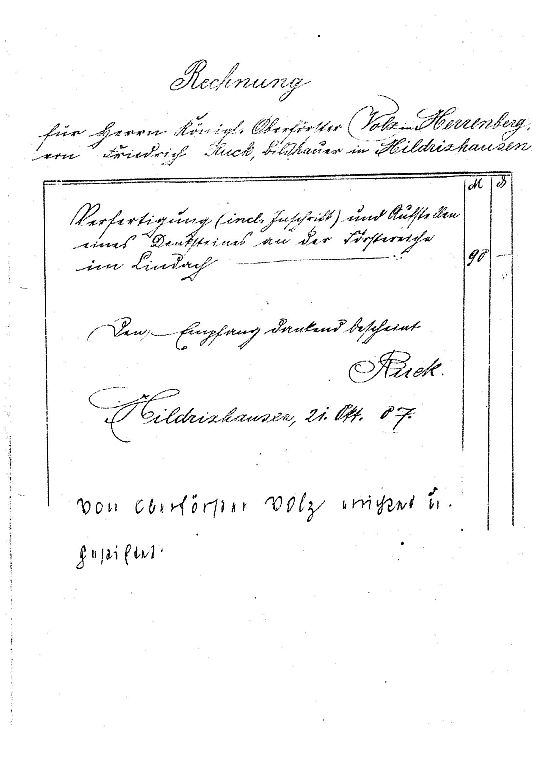 Rechnung
für Herrn Königl. Oberförster Volz in Herrenberg,
von Friedrich Ruck, Bildhauer in Hildrizhausen
M ₰
Verfertigung (incl. Inschrift) und Aufstellen
eines Denksteines an der Förstereiche
im Lindach 90 —
Den Empfang dankend bescheint
Ruck.
Hildrizhausen, 21. Okt. 07.
Von Oberförster Volz errichtet u.